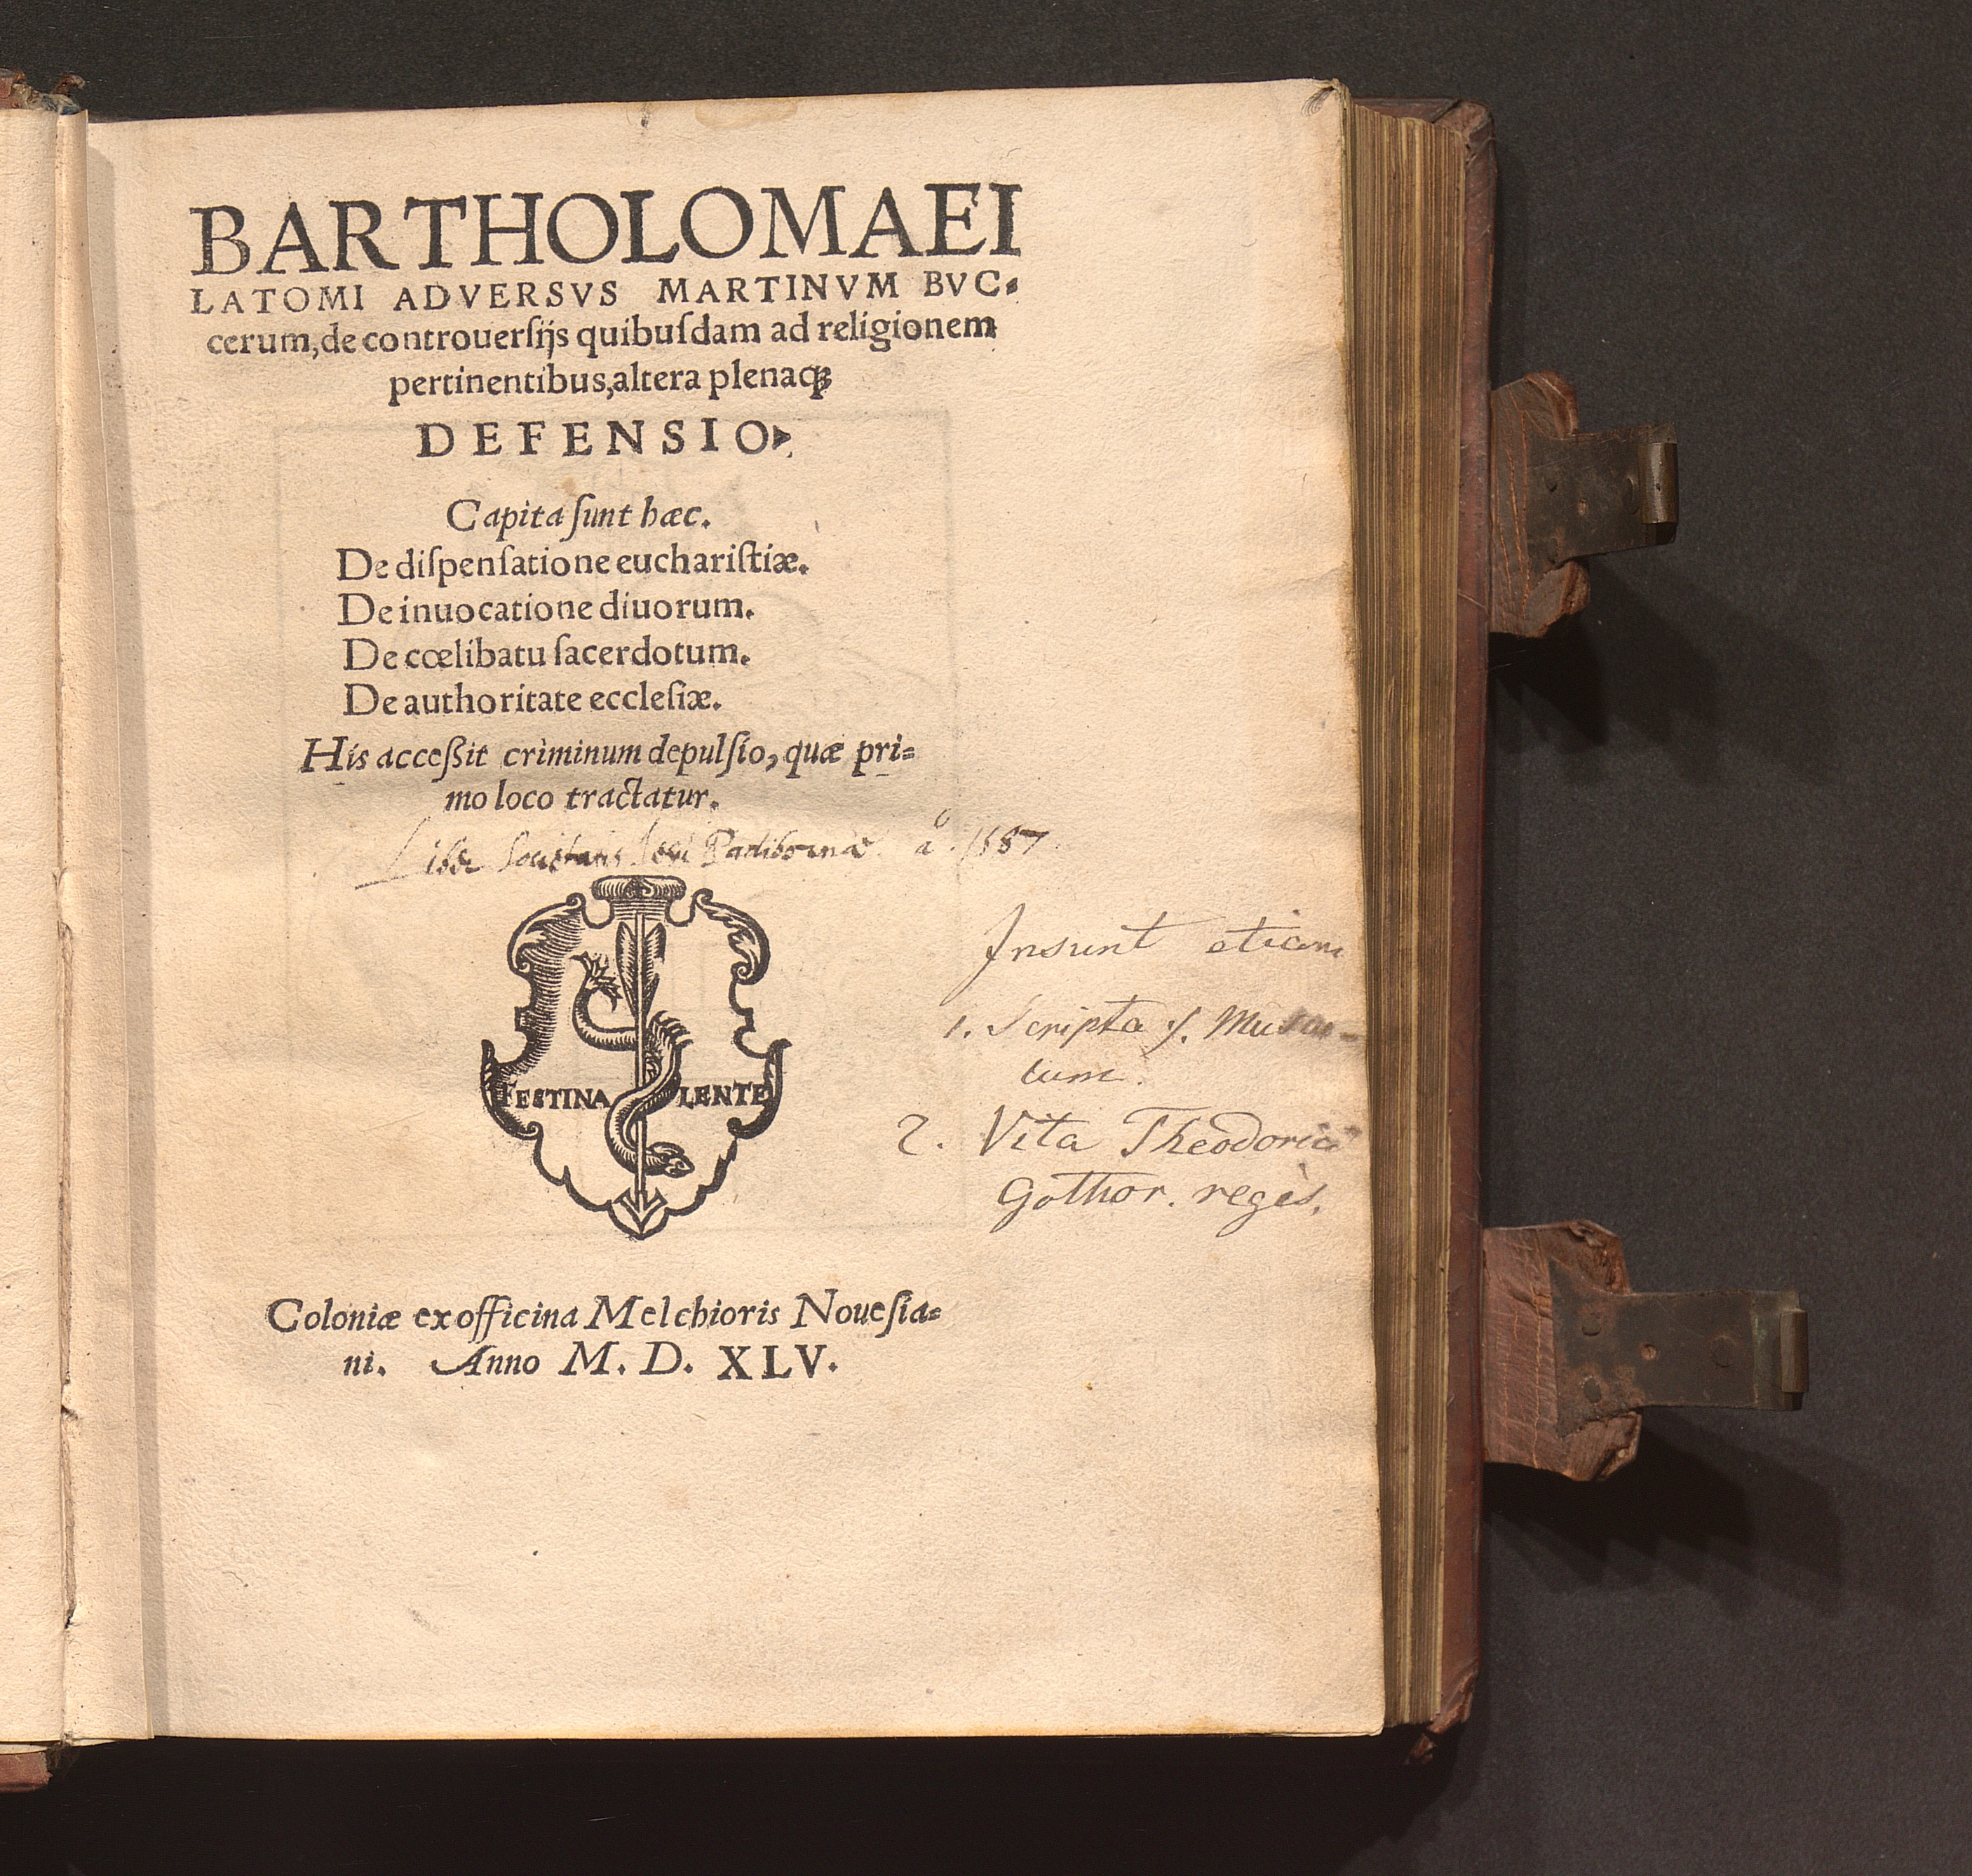 BARTHOLOMAEI
LATOMI ADVERSVS MARTINVM BVC⸗
cerum, de controuerſijs quibuſdam ad religionem
pertinentibus, altera plenaqꝫ
DEFENSIO
Capita ſunt hæc.
De diſpenſatione euchariſtiæ.
De inuocatione diuorum.
De cœlibatu ſacerdotum.
De authoritate eccleſiæ.
His acceßit criminum depulſio, quæ pri⸗
mo loco tractatur.
Liber Societatis Jesu Paderbornæ aº. 1587
FESTINA LENTE
Insunt etiam
1. Scripta
2. Vita Theodorici
Gothor. regis.
Coloniæ ex officina Melchioris Noueſia⸗
ni. Anno M. D. XLV.